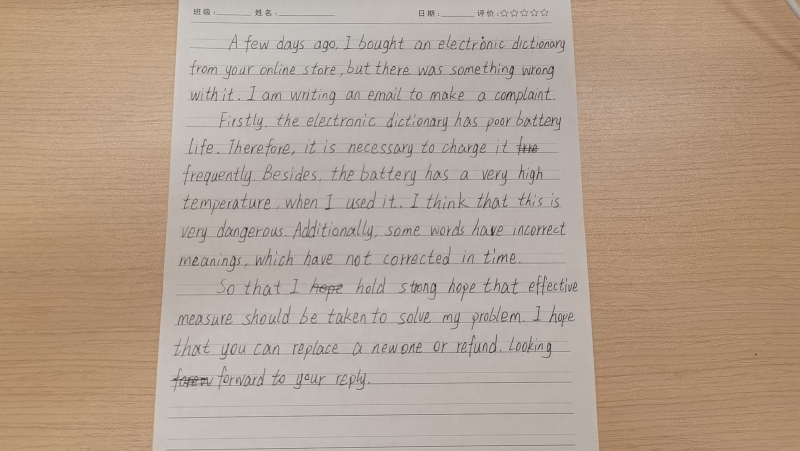 班级: 姓名: 日期: 评价:☆☆☆☆☆
A few days ago, I bought an electronic dictionary
from your online store, but there was something wrong
with it. I am writing an email to make a complaint.
Firstly, the electronic dictionary has poor battery
life. Therefore, it is necessary to charge it
frequently. Besides, the battery has a very high
temperature, when I used it. I think that this is
very dangerous. Additionally, some words have incorrect
meanings, which have not corrected in time.
So that I hope hold strong hope that effective
measure should be taken to solve my problem. I hope
that you can replace a new one or refund. Looking
forward to your reply.